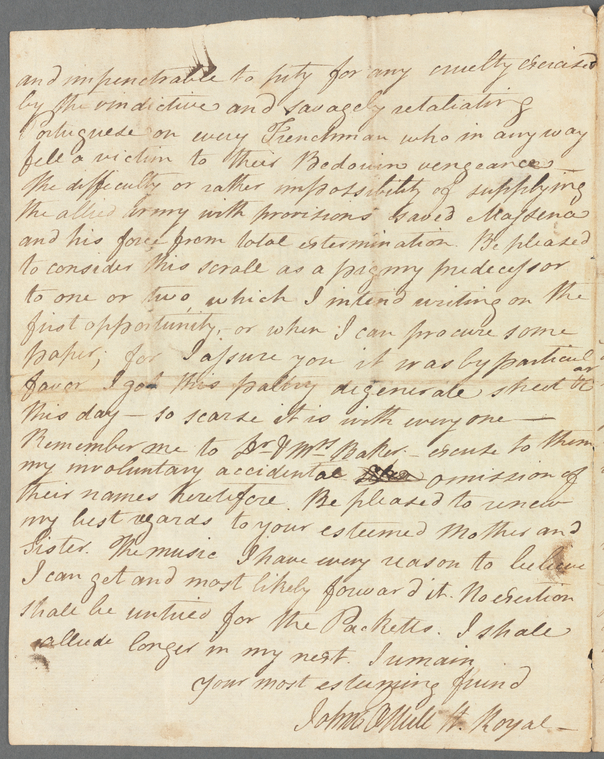 and impenetrable to pity for any cruelty Exercised
by the vindictive and savagely retaliating
Portuguese on every Frenchman who in any way
fell a victim to their Bedouin vengeance
the difficulty or rather impossibility of supplying
the allied army with provisions saved Massena
and his force from total extermination. Be pleased
to consider this scrall as a pigmy predecessor
to one or two, which I intend writing on the
first opportunity, or when I can procure some
paper; for I assure you it was by particular
favor I got this paltry degenerate sheet
this day – so scarse it is with every one –
Remember me to Dr & Mrs Baker – excuse to them
my involuntary accidental omission of
their names heretofore. Be pleased to renew
my best regards to your esteemed Mother and
Sister. The music I have every reason to believe
I can get and most likely forward it. No exertion
shall be untried for the Packetts. I shall
allude longer in my next. I remain
your most esteeming friend
John ONeill Royal –